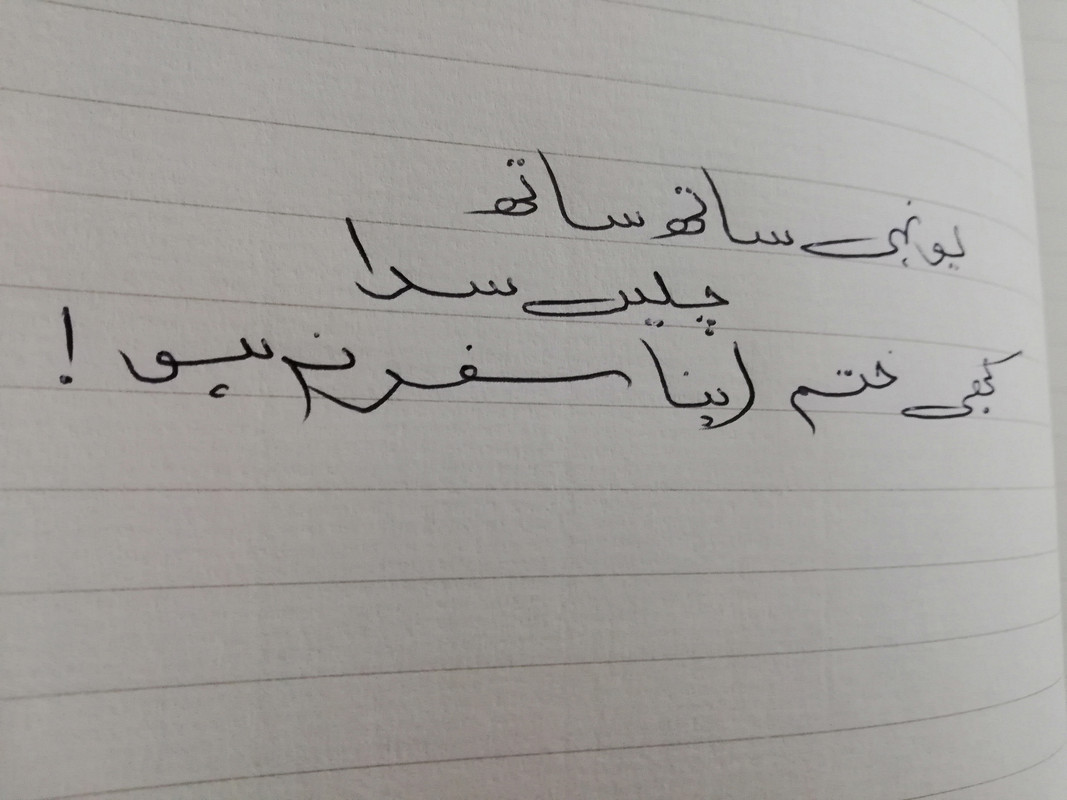 یونہی ساتھ ساتھ
چلیں سدا
کبھی ختم اپنا سفر نہ ہو !